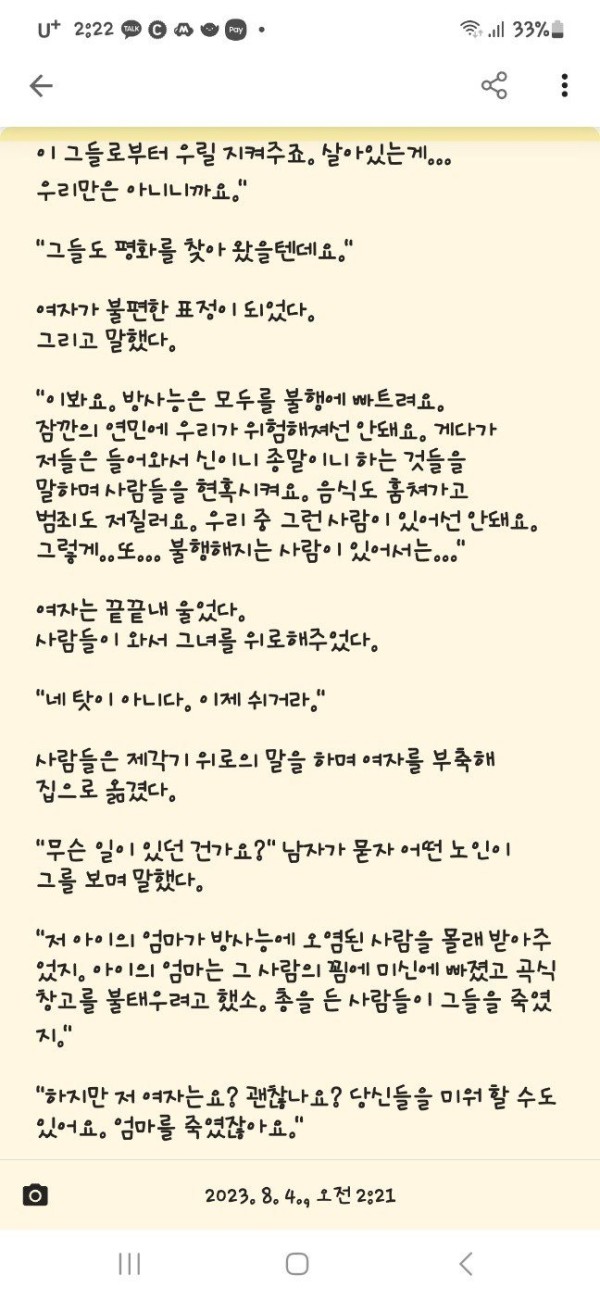 U+ 2:22 TALK C Pay • 33%
이 그들로부터 우릴 지켜주죠. 살아있는게...
우리만은 아니니까요."
"그들도 평화를 찾아 왔을텐데요."
여자가 불편한 표정이 되었다.
그리고 말했다.
"이봐요. 방사능은 모두를 불행에 빠트려요.
잠깐의 연민에 우리가 위험해져선 안돼요. 게다가
저들은 들어와서 신이니 종말이니 하는 것들을
말하며 사람들을 현혹시켜요. 음식도 훔쳐가고
범죄도 저질러요. 우리 중 그런 사람이 있어선 안돼요.
그렇게..또... 불행해지는 사람이 있어서는..."
여자는 끝끝내 울었다.
사람들이 와서 그녀를 위로해주었다.
"네 탓이 아니다. 이제 쉬거라."
사람들은 제각기 위로의 말을 하며 여자를 부축해
집으로 옮겼다.
"무슨 일이 있던 건가요?" 남자가 묻자 어떤 노인이
그를 보며 말했다.
"저 아이의 엄마가 방사능에 오염된 사람을 몰래 받아주
었지. 아이의 엄마는 그 사람의 꾐에 미신에 빠졌고 곡식
창고를 불태우려고 했소. 총을 든 사람들이 그들을 죽였
지."
"하지만 저 여자는요? 괜찮나요? 당신들을 미워 할 수도
있어요. 엄마를 죽였잖아요."
2023. 8. 4., 오전 2:21